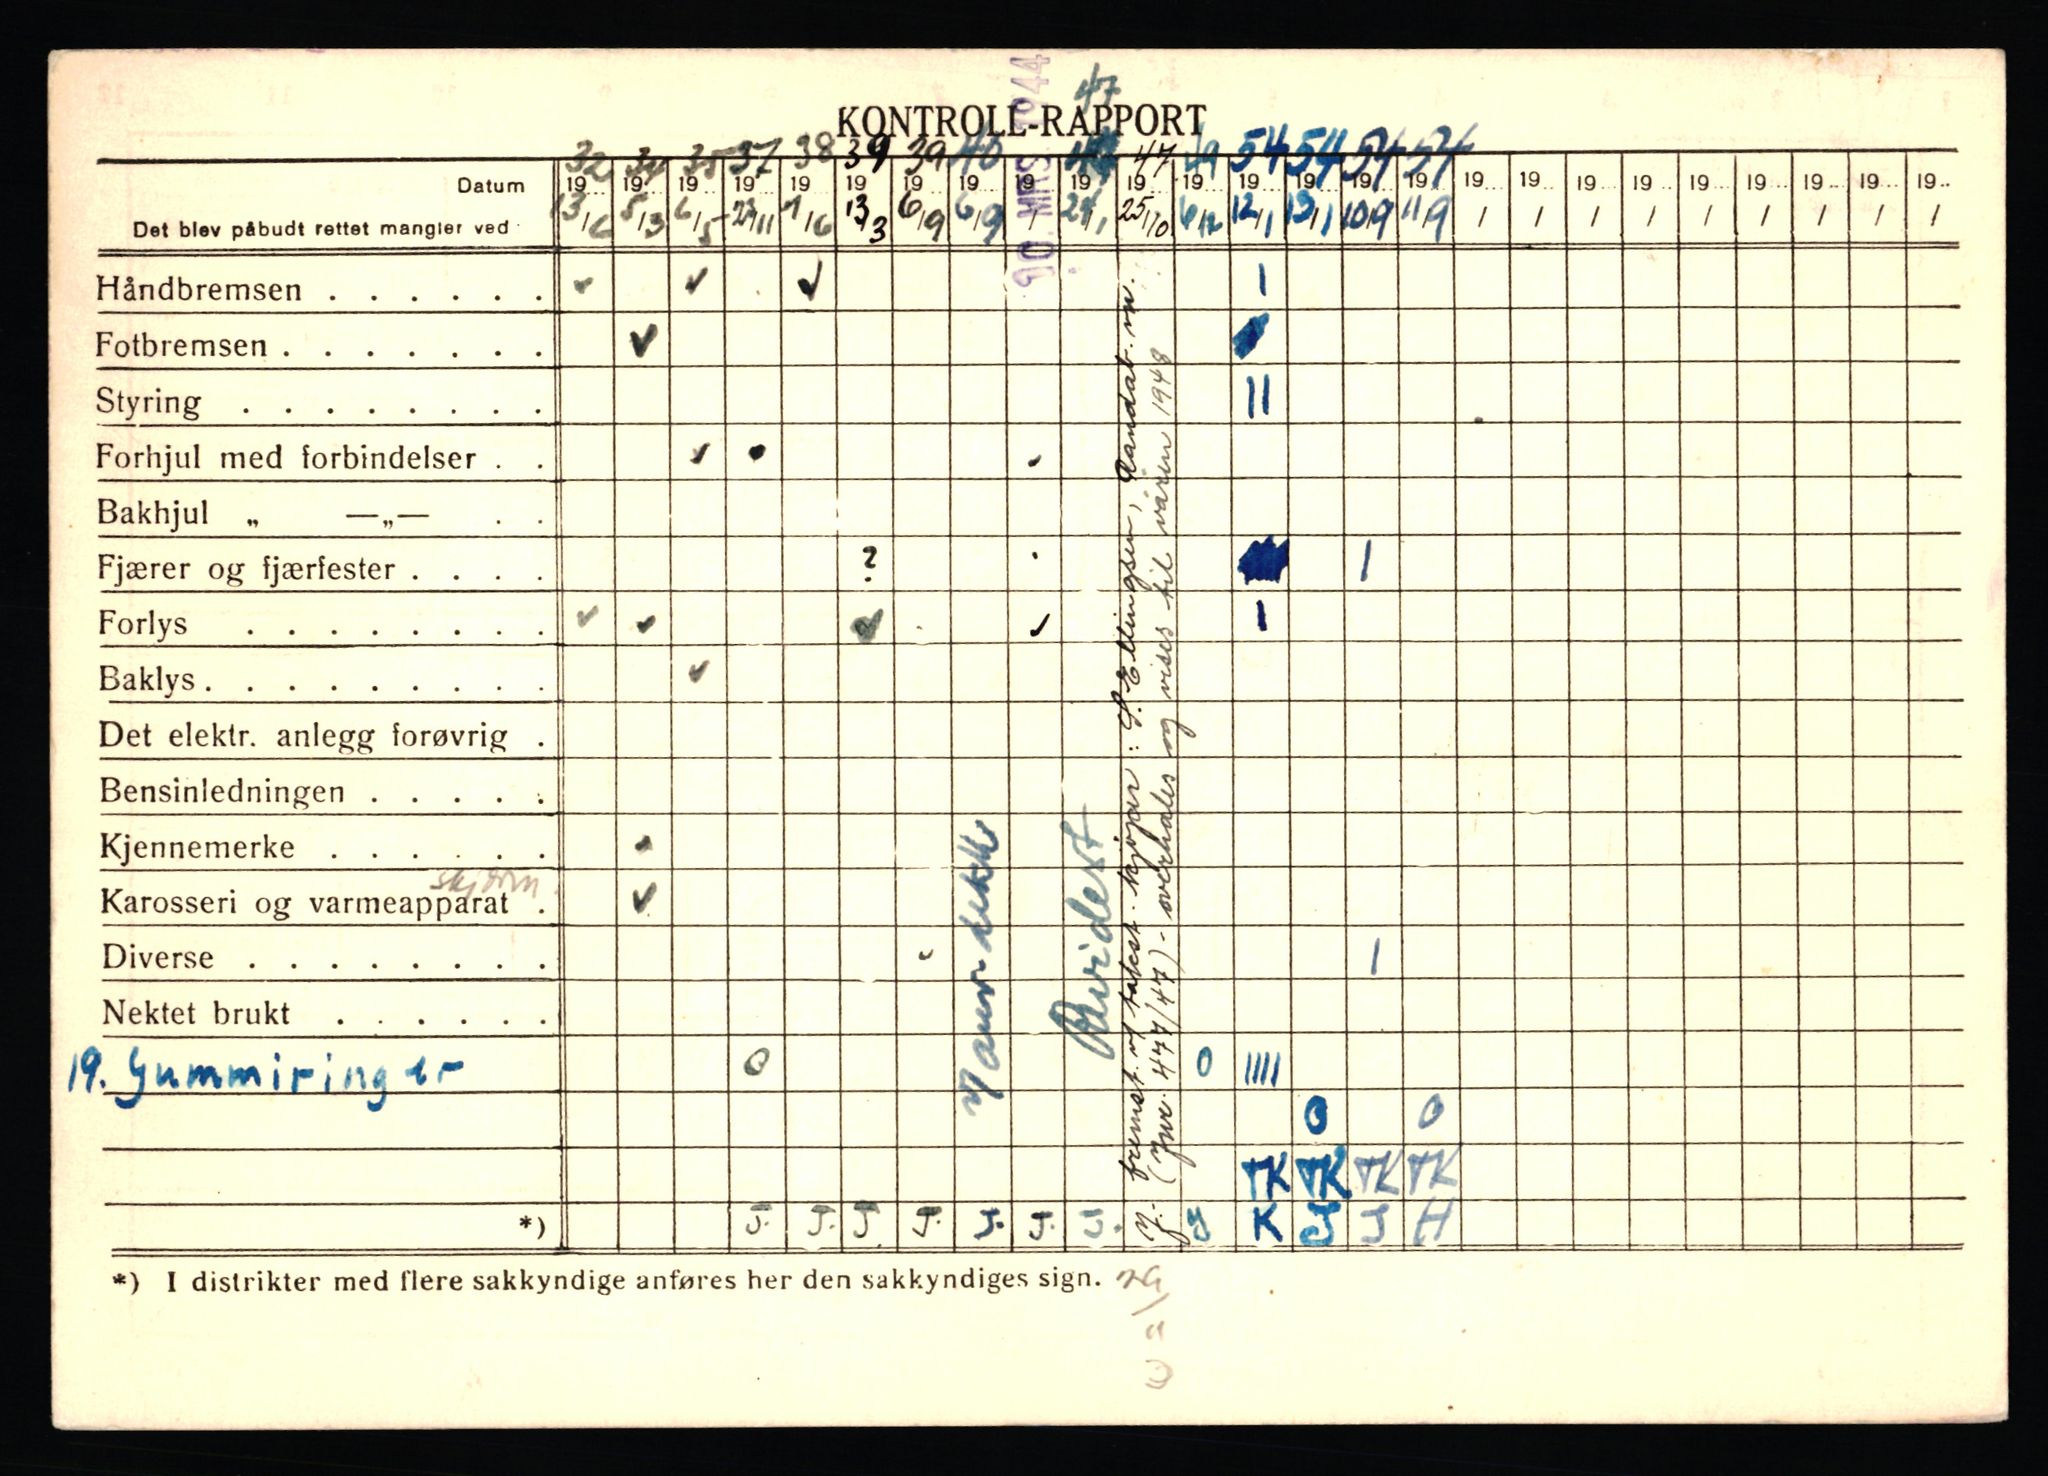 47
KONTROLL-RAPPORT
32 34 35 37 38 39 39 40 10. MRS. 1944 47 49 54 54 54 54
Datum 19 19 19 19 19 19 19 19 19 19 19 19 19 19 19 19 19 19 19 19 19 19 19 19 19
Det blev påbudt rettet mangler ved 13/6 5/3 6/5 23/11 7/6 13/3 6/9 6/9 / 29/1 25/10 6/12 12/1 13/1 10/9 11/9 / / / / / / / / /
Håndbremsen ✓ ✓ ✓ I
Fotbremsen ✓
Styring II
Forhjul med forbindelser ✓
Bakhjul „ —„—
Fjærer og fjærfester ? I
Forlys ✓ ✓ ✓ ✓ I
Baklys ✓
Det elektr. anlegg forøvrig
Bensinledningen
Kjennemerke
Karosseri og varmeapparat ✓
Diverse I
Nektet brukt
19. Gummiringer O O IIII
O O
TK TK TK TK
*) J. J. J. J. J. J. J. Y K J J H
Revidert
fremst. v/ takst. kjøper: S. Ellingsen,
overhales og vises til våren 1948
*) I distrikter med flere sakkyndige anføres her den sakkyndiges sign.